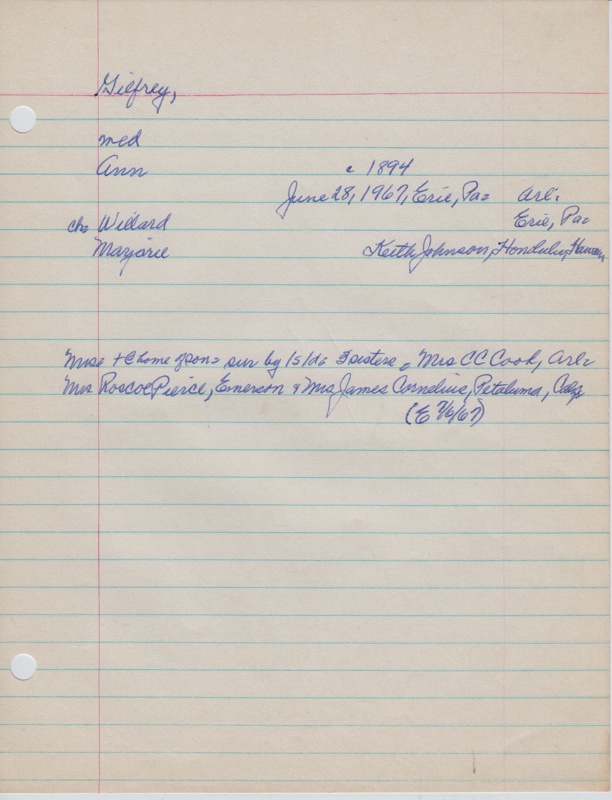 Gilfrey,
med
Ann c 1894
June 28, 1967, Erie, Pa= Arl:
ch= Willard Erie, Pa=
Marjorie Keith Johnson, Honolulu, Hawaii
Mrs= + C home of son= sur by 1s/1d= 3 sisters = Mrs CC Cook, Arl=
Mrs Roscoe Pierce, Emerson & Mrs James Cornelius, Petaluma, Calif
(E 7/6/67)